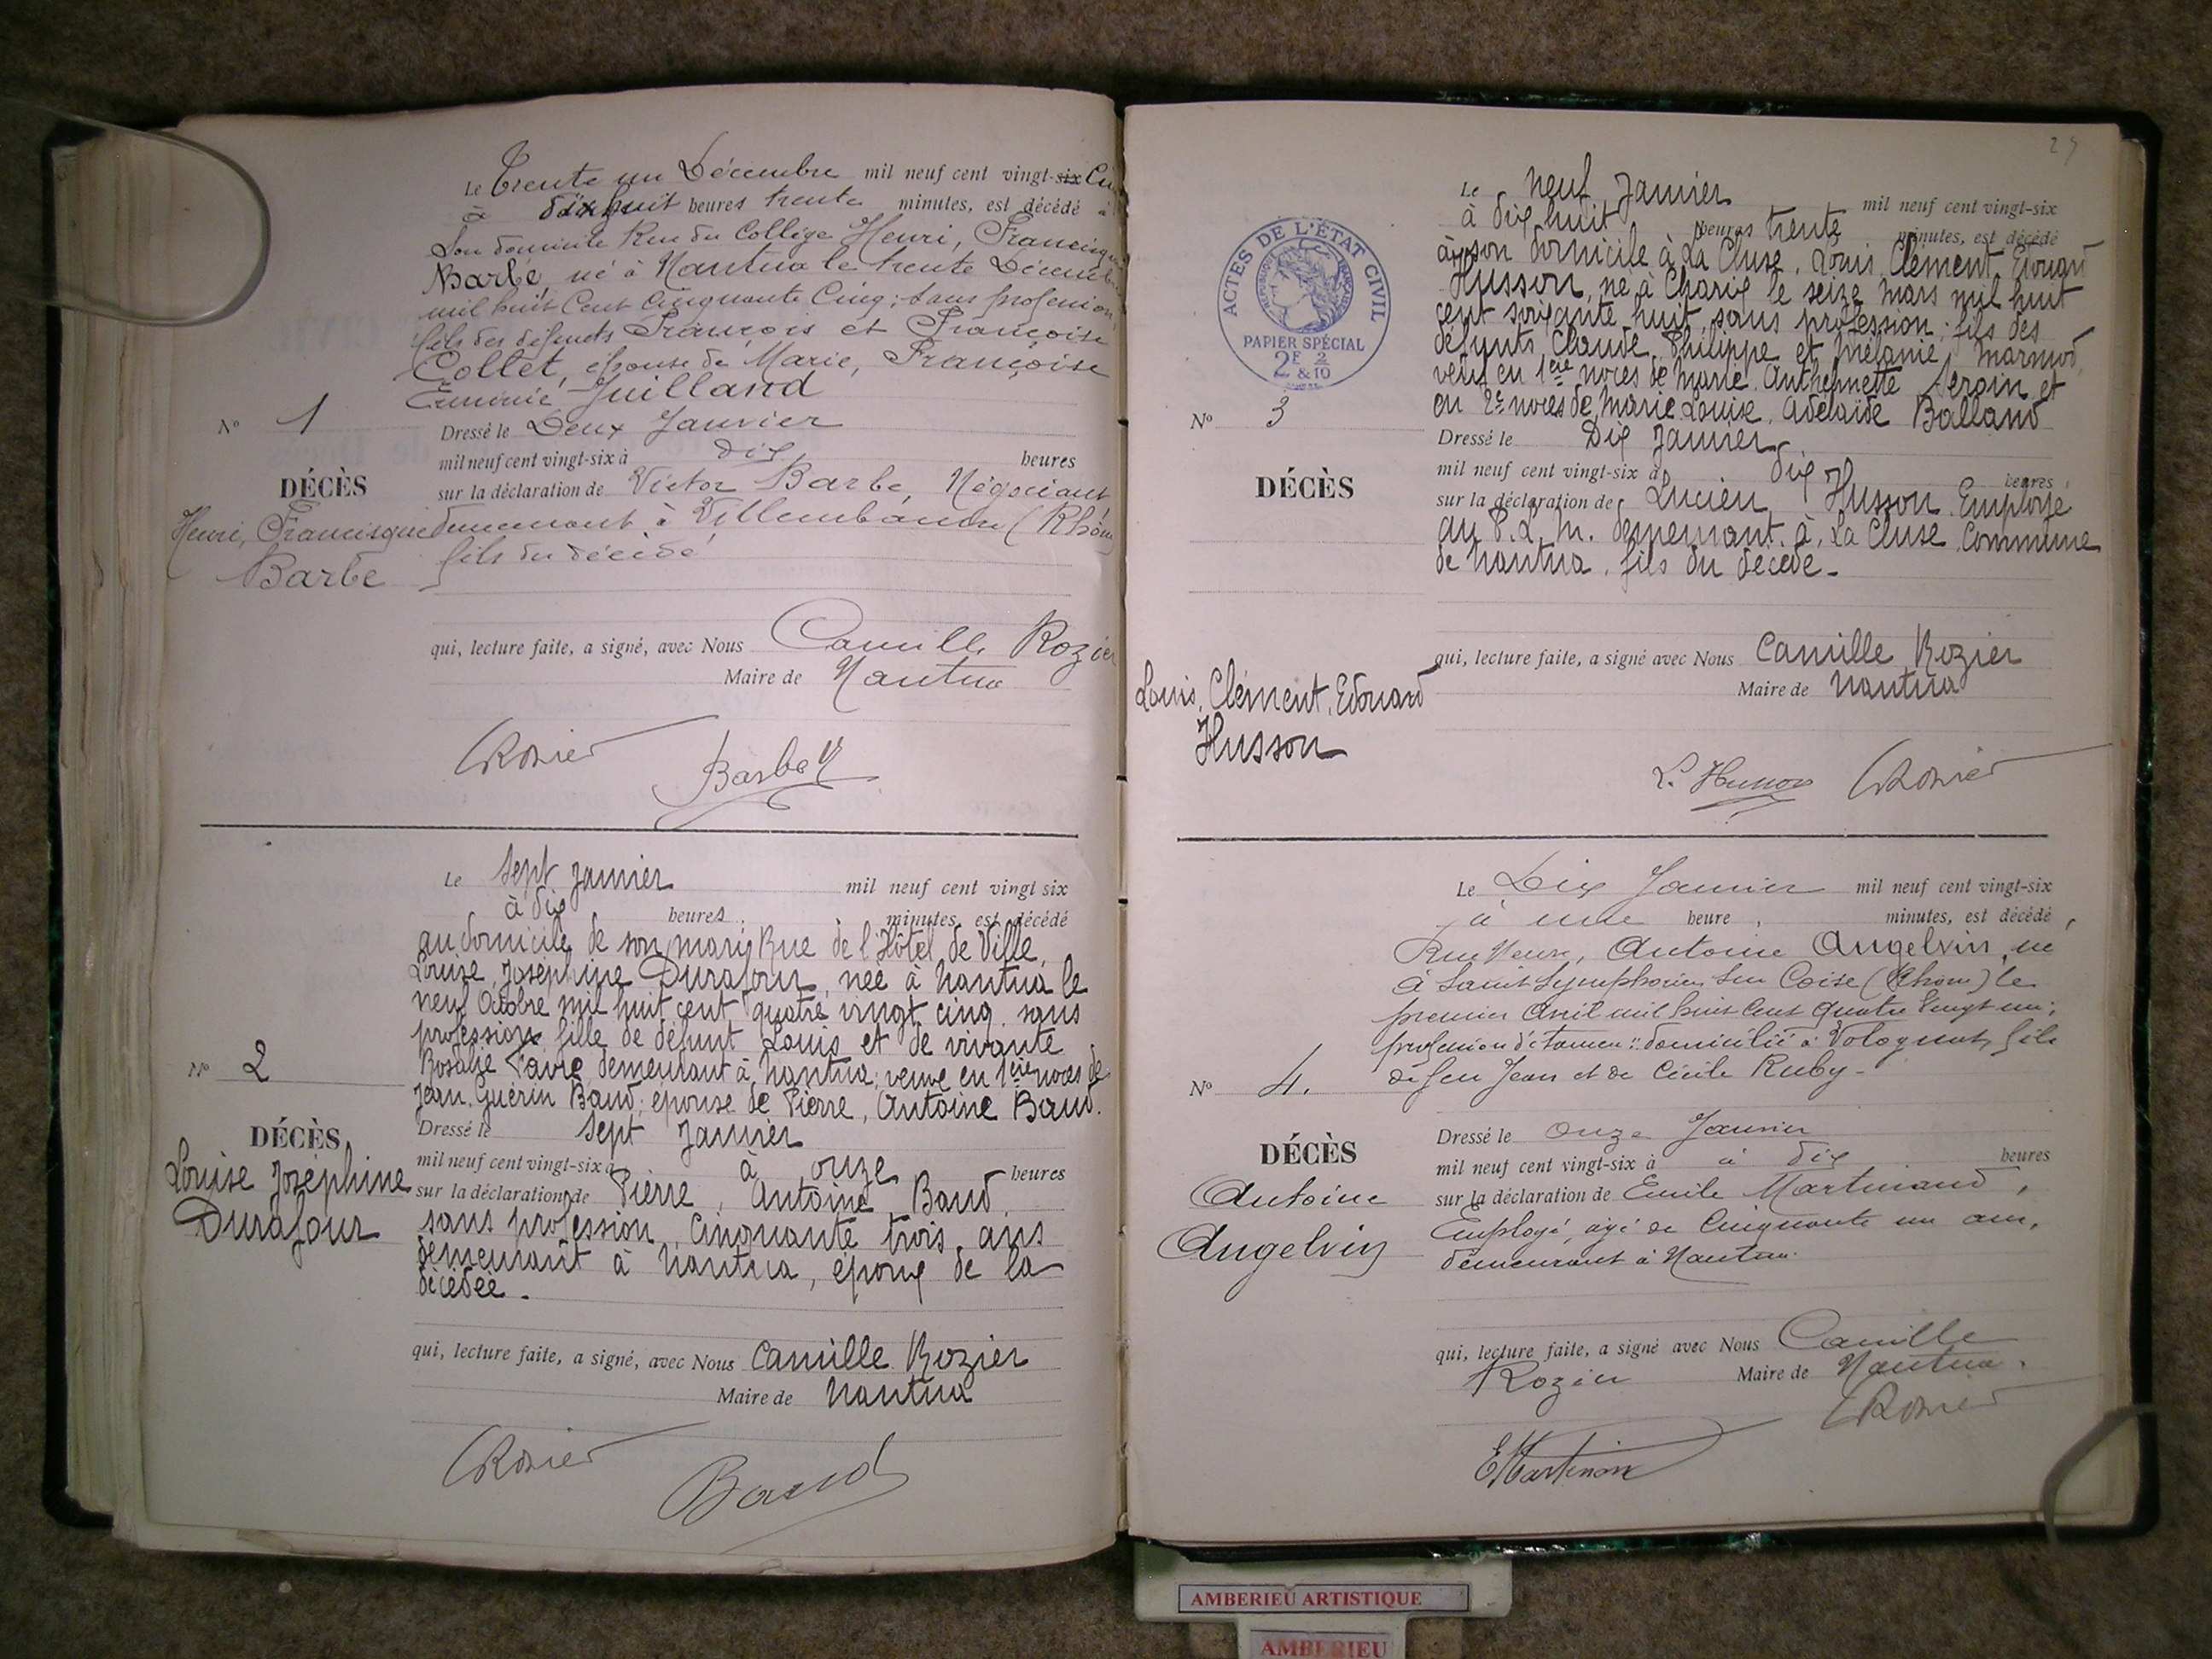 Le Trente un Décembre mil neuf cent vingt-six Cin
à dix huit heures trente minutes, est décédé à
Son domicile Rue du Collège Henri, Francisque
Barbe, né à Nantua le trente Décembre
mil huit Cent Cinquante Cinq; Sans profession,
fils des défunts François et Françoise
Collet, épouse de Marie, Françoise
Juilland
Nº 1
Dressé le Deux Janvier
mil neuf cent vingt-six à dix heures
DÉCÈS
sur la déclaration de Victor Barbe, Négociant,
Henri, Francisque
Barbe
demeurant à Villeurbanne (Rhône
fils du décédé
qui, lecture faite, a signé, avec Nous Camille Rozier
Maire de Nantua
CRozier
Barbe V
Le Sept Janvier mil neuf cent vingt six
à dix heures, minutes, est décédé
au domicile de son mari Rue de l'Hôtel de Ville,
Louise, Joséphine Durafour, née à Nantua le
neuf Octobre mil huit cent quatre vingt cinq, sans
profession fille de défunt Louis et de vivante
Rosalie Favre demeurant à Nantua; veuve en 1ère noces de
Jean Guérin Baud; épouse de Pierre, Antoine Baud.
Nº 2
Dressé le Sept Janvier
DÉCÈS
mil neuf cent vingt-six à à onze heures
Louise Joséphine
Durafour
sur la déclaration de Pierre, Antoine Baud,
sans profession, cinquante trois ans
demeurant à Nantua, époux de la
décédée.
qui, lecture faite, a signé, avec Nous Camille Rozier
Maire de Nantua
CRozier
Baud
ACTES DE L'ÉTAT CIVIL
PAPIER SPÉCIAL
2F 2/10
& 10
Le neuf Janvier mil neuf cent vingt-six
à dix huit heures trente minutes, est décédé
à son domicile à La Cluse, Louis, Clément, Edouard
Husson, né à Charix le seize mars mil huit
cent soixante huit, sans profession; fils des
défunts Claude, Philippe et Mélanie,
veuf en 1ère noces de Marie Anthelmette et
en 2e noces de, Marie Louise, Adélaïde Balland
Nº 3
Dressé le Dix Janvier
DÉCÈS
mil neuf cent vingt-six à dix heures
sur la déclaration de Lucien Husson Employé
au P.L.M. demeurant à La Cluse Commune
de Nantua, fils du décédé.
qui, lecture faite, a signé avec Nous Camille Rozier
Maire de Nantua
Louis, Clément, Edouard
Husson
L. Husson
CRozier
Le Dix Janvier mil neuf cent vingt-six
à une heure, minutes, est décédé,
Rue Neuve, Antoine Angelvin, né
à Saint Symphorien Sur Coise (Rhône) le
premier Avril mil huit Cent quatre Vingt un;
profession d'étameur; domicilié à Volognat, fils
de feu Jean et de Cécile Ruby-
Nº 4.
Dressé le Onze Janvier
DÉCÈS
mil neuf cent vingt-six à à dix heures
Antoine
Angelvin
sur la déclaration de Emile Martinand,
Employé, âgé de Cinquante un ans,
demeurant à Nantua.
qui, lecture faite, a signé avec Nous Camille
Rozier Maire de Nantua.
CRozier
AMBERIEU ARTISTIQUE
AMBERIEU